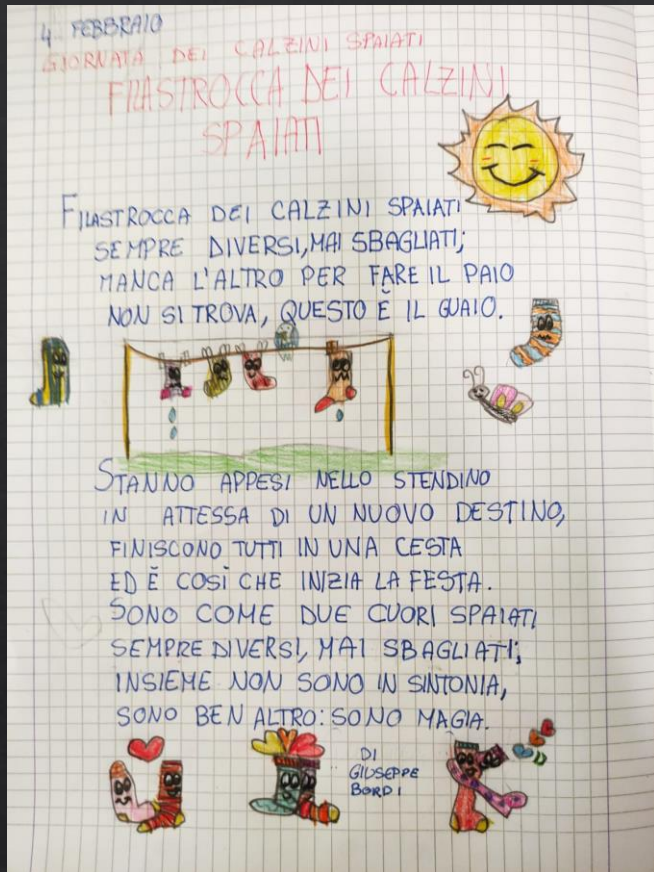 4 FEBBRAIO
GIORNATA DEI CALZINI SPAIATI
FILASTROCCA DEI CALZINI
SPAIATI
FILASTROCCA DEI CALZINI SPAIATI
SEMPRE DIVERSI, MAI SBAGLIATI;
MANCA L'ALTRO PER FARE IL PAIO
NON SI TROVA, QUESTO È IL GUAIO.
STANNO APPESI NELLO STENDINO
IN ATTESSA DI UN NUOVO DESTINO,
FINISCONO TUTTI IN UNA CESTA
ED È COSÌ CHE INIZIA LA FESTA.
SONO COME DUE CUORI SPAIATI
SEMPRE DIVERSI, MAI SBAGLIATI;
INSIEME NON SONO IN SINTONIA,
SONO BEN ALTRO: SONO MAGIA.
DI
GIUSEPPE
BORDI